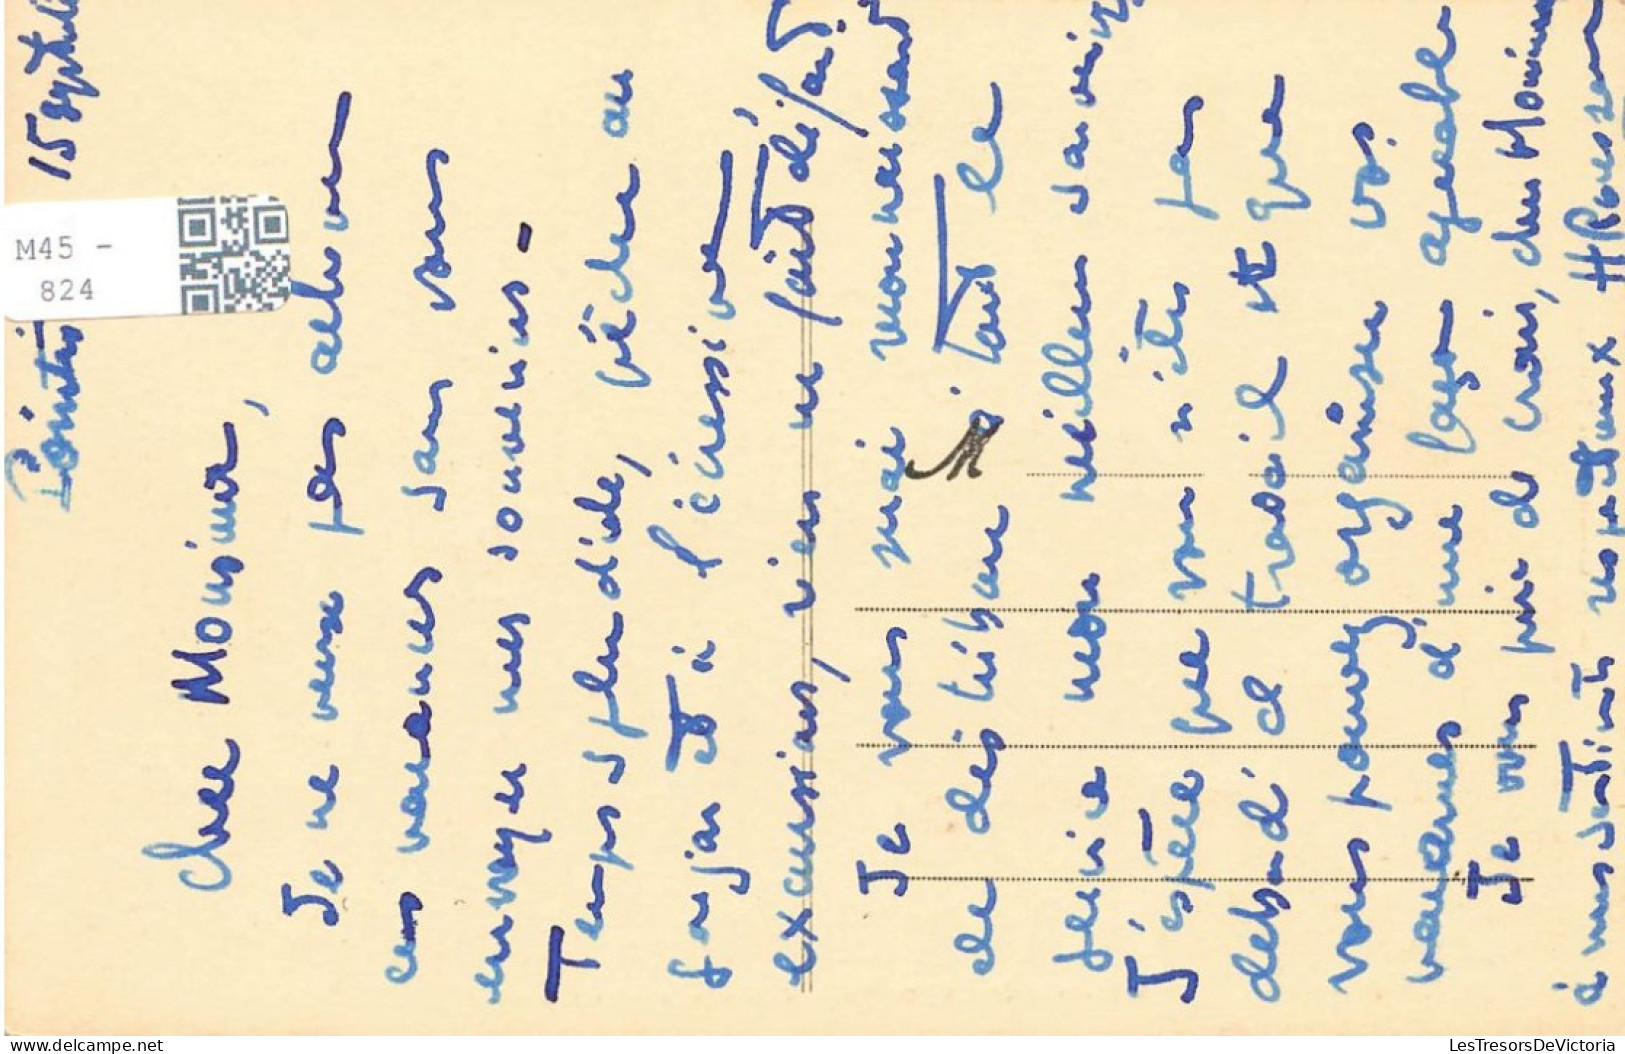 15 Septembre
Cher Monsieur,
Je ne veux pas achever
ces vacances sans vous
envoyer mes souvenirs -
Temps splendide, pêche au
et à l'écrevisse
excursions, rien ne fait défaut.
Je vous serai reconnaissant
de distribuer tout le
mon meilleur souvenir
J'espère que vous n'êtes pas
débordé de travail et que
vous pouvez organiser vos
vacances d'une façon agréable
Je vous prie de croire, cher Monsieur
à mes sentiments respectueux
M
M45 -
824
delcampe.net
LesTresorsDeVictoria